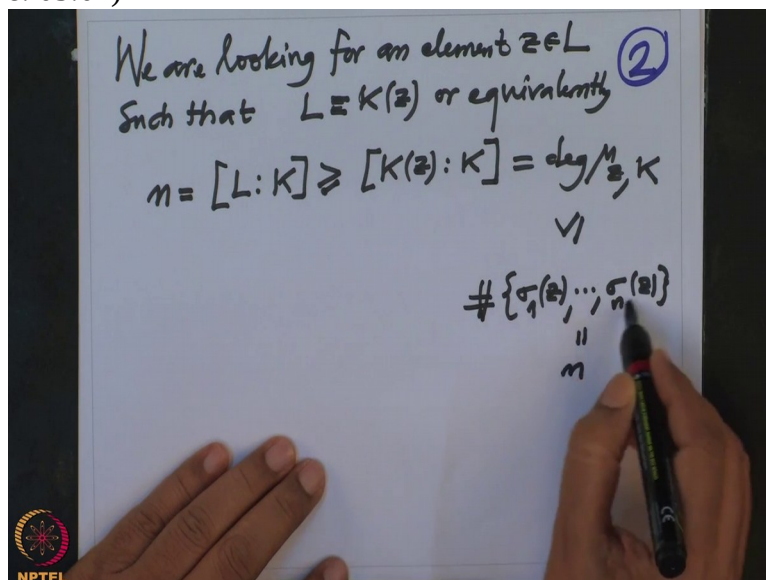 We are looking for an element z∈L
such that L = K(z) or equivalently
②
n = [L:K] ⩾ [K(z):K] = deg μ_{z,K}
∨|
# {σ₁(z), ..., σₙ(z)}
॥
n
NPTEL